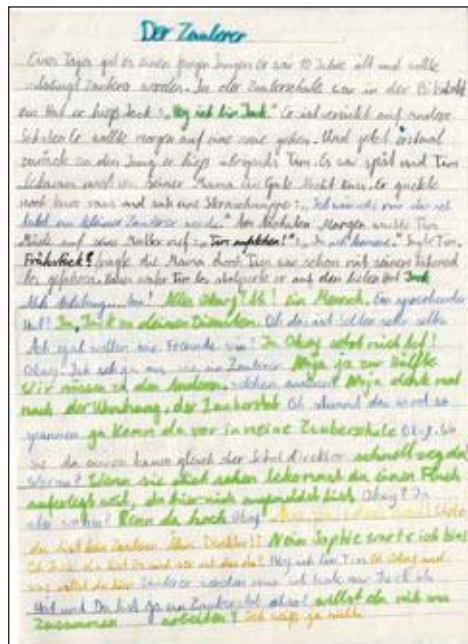 Der Zauberer
Eines Tages gab es einen jungen Jungen er war 10 Jahre alt und wollte
unbedingt Zauberer werden. In der Zauberschule war in der
ein Hut er hieß Jack: „Hey ich bin Jack" Er ist verrückt auf andere
Schulen Er wollte morgen auf eine neue gehen. Und jetzt erstmal
zurück zu den Jung er hieß übrigends Tim. Es war spät und Tim
noch von seiner Mama ein Gute Nacht Kuss. Er guckte
noch kurz raus und sah eine Sternschnuppe: „Ich wünsche mir das ich
bald ein kleiner Zauberer werde" Am nächsten Morgen weckte Tim
Müde auf seine Mutter rief: „Tim aufstehen!": „Ja ich komme." Tim.
Frühstück? fragte die Mama doch Tim war schon mit seinem
los gefahren. Kaum Tim los stolperte er auf den Hut Jack
Alles Okay? Äh! ein Mensch. Ein sprechender
Hut? Ja, Jack zu deinen Diensten. Oh das ist selten sehr
Ach egal wollen wir Freunde sein? Ja Okay setzt mich auf!
Okay. Ich seh ja aus wie ein Zauberer. Naja ja zur Hälfte
Wir müssen zu den Anderen. welchen anderen? Naja denk mal
nach der Umhang, der Zauberstab Oh stimmt das wird so
spannend ja Komm da vor in meine Zauberschule Okay. Wo
sie da waren kam gleich der Schuldirektor schnell weg da!
Warum? Wenn sie dich sehen bekommst du einen Fluch
auferlegt weil, du hier nicht angemeldet bist Okay? Ja
aber wohin? Renn da hoch Okay!
du bist kein Zauberer Direktor!! Nein Sophie warte ich bins
Oh Jack du bist es und wer ist das da? Hey ich bin Tim Oh Okay und
was willst du hier Zauberer werden nur ich habe nur Jack als
Hut und Du bist ja ein Zauberstab also willst du mit uns
zusammen arbeiten? Ich weiß ja nicht